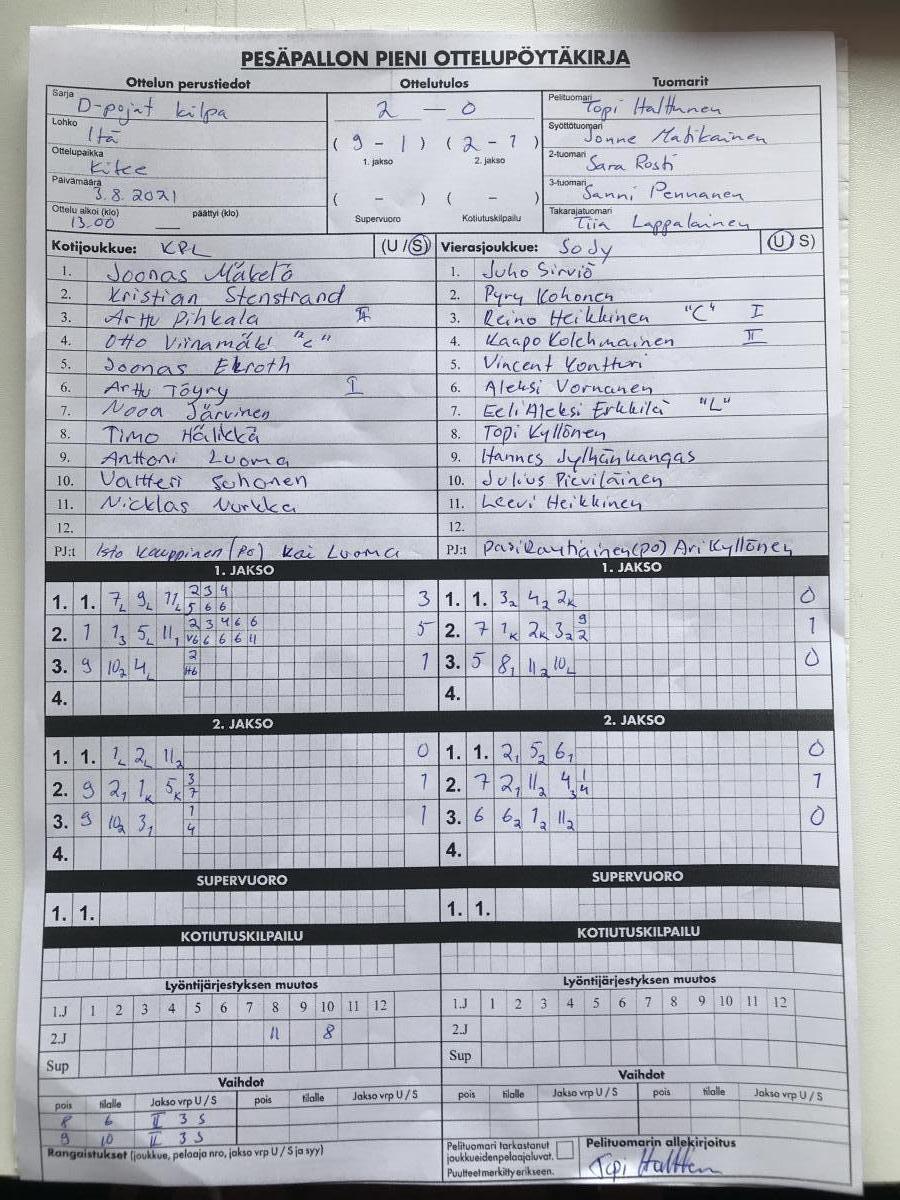 PESÄPALLON PIENI OTTELUPÖYTÄKIRJA
Ottelun perustiedot Ottelutulos Tuomarit
Sarja D-pojat kilpa 2 – 0 Pelituomari Topi Halttunen
Lohko Itä ( 9 - 1 ) ( 2 - 1 ) Syöttötuomari Jonne Matikainen
1. jakso 2. jakso
Ottelupaikka Kitee 2-tuomari Sara Rosti
Päivämäärä 3.8.2021 ( - ) ( - ) 3-tuomari Sanni Pennanen
Ottelu alkoi (klo) 13.00 päättyi (klo) — Supervuoro Kotiutuskilpailu Takarajatuomari Tiia Lappalainen
Kotijoukkue: KPL (U / S) Vierasjoukkue: SoJy (U S)
1. Joonas Mäkelä 1. Juho Sirviö
2. Kristian Stenstrand 2. Pyry Kohonen
3. Arttu Pihkala II 3. Reino Heikkinen "C" I
4. Otto Viinamäki "C" 4. Kaapo Kolehmainen II
5. Joonas Ekroth 5. Vincent Kontturi
6. Arttu Töyry I 6. Aleksi Vornanen
7. Nooa Järvinen 7. Eeli Aleksi Erkkilä "L"
8. Timo Hälikkä 8. Topi Kyllönen
9. Anttoni Luoma 9. Hannes Jylhänkangas
10. Valtteri Suhonen 10. Julius Pieviläinen
11. Nicklas Nurkka 11. Leevi Heikkinen
12. 12.
PJ:t Isto Kauppinen (po) Kai Luoma PJ:t Pasi Rautiainen (po) Ari Kyllönen
1. JAKSO 1. JAKSO
1. 1. 7L 9L 11L 2 3 4 3 1. 1. 32 42 2K 0
5 6 6
2. 1 13 5L 11, 2 3 4 6 6 5 2. 7 1K 2K 32 9 1
V6 6 6 6 11 2
3. 9 102 4L 2 1 3. 5 81 112 10L 0
H6
4. 4.
2. JAKSO 2. JAKSO
1. 1. 1L 2L 112 0 1. 1. 21 52 61 0
2. 9 21 1K 5K 3 1 2. 7 21 112 43 1 1
7 4
3. 9 102 31 1 1 3. 6 62 12 112 0
4
4. 4.
SUPERVUORO SUPERVUORO
1. 1. 1. 1.
KOTIUTUSKILPAILU KOTIUTUSKILPAILU
Lyöntijärjestyksen muutos Lyöntijärjestyksen muutos
1.J 1 2 3 4 5 6 7 8 9 10 11 12 1.J 1 2 3 4 5 6 7 8 9 10 11 12
2.J 11 8 2.J
Sup Sup
Vaihdot Vaihdot
pois tilalle Jakso vrp U / S pois tilalle Jakso vrp U / S pois tilalle Jakso vrp U / S pois tilalle Jakso vrp U / S
8 6 II 3 S
9 10 II 3 S
Rangaistukset (joukkue, pelaaja nro, jakso vrp U / S ja syy) Pelituomari tarkastanut Pelituomarin allekirjoitus
joukkueidenpelaajaluvat.
Puutteet merkitty erikseen. Topi Haltten